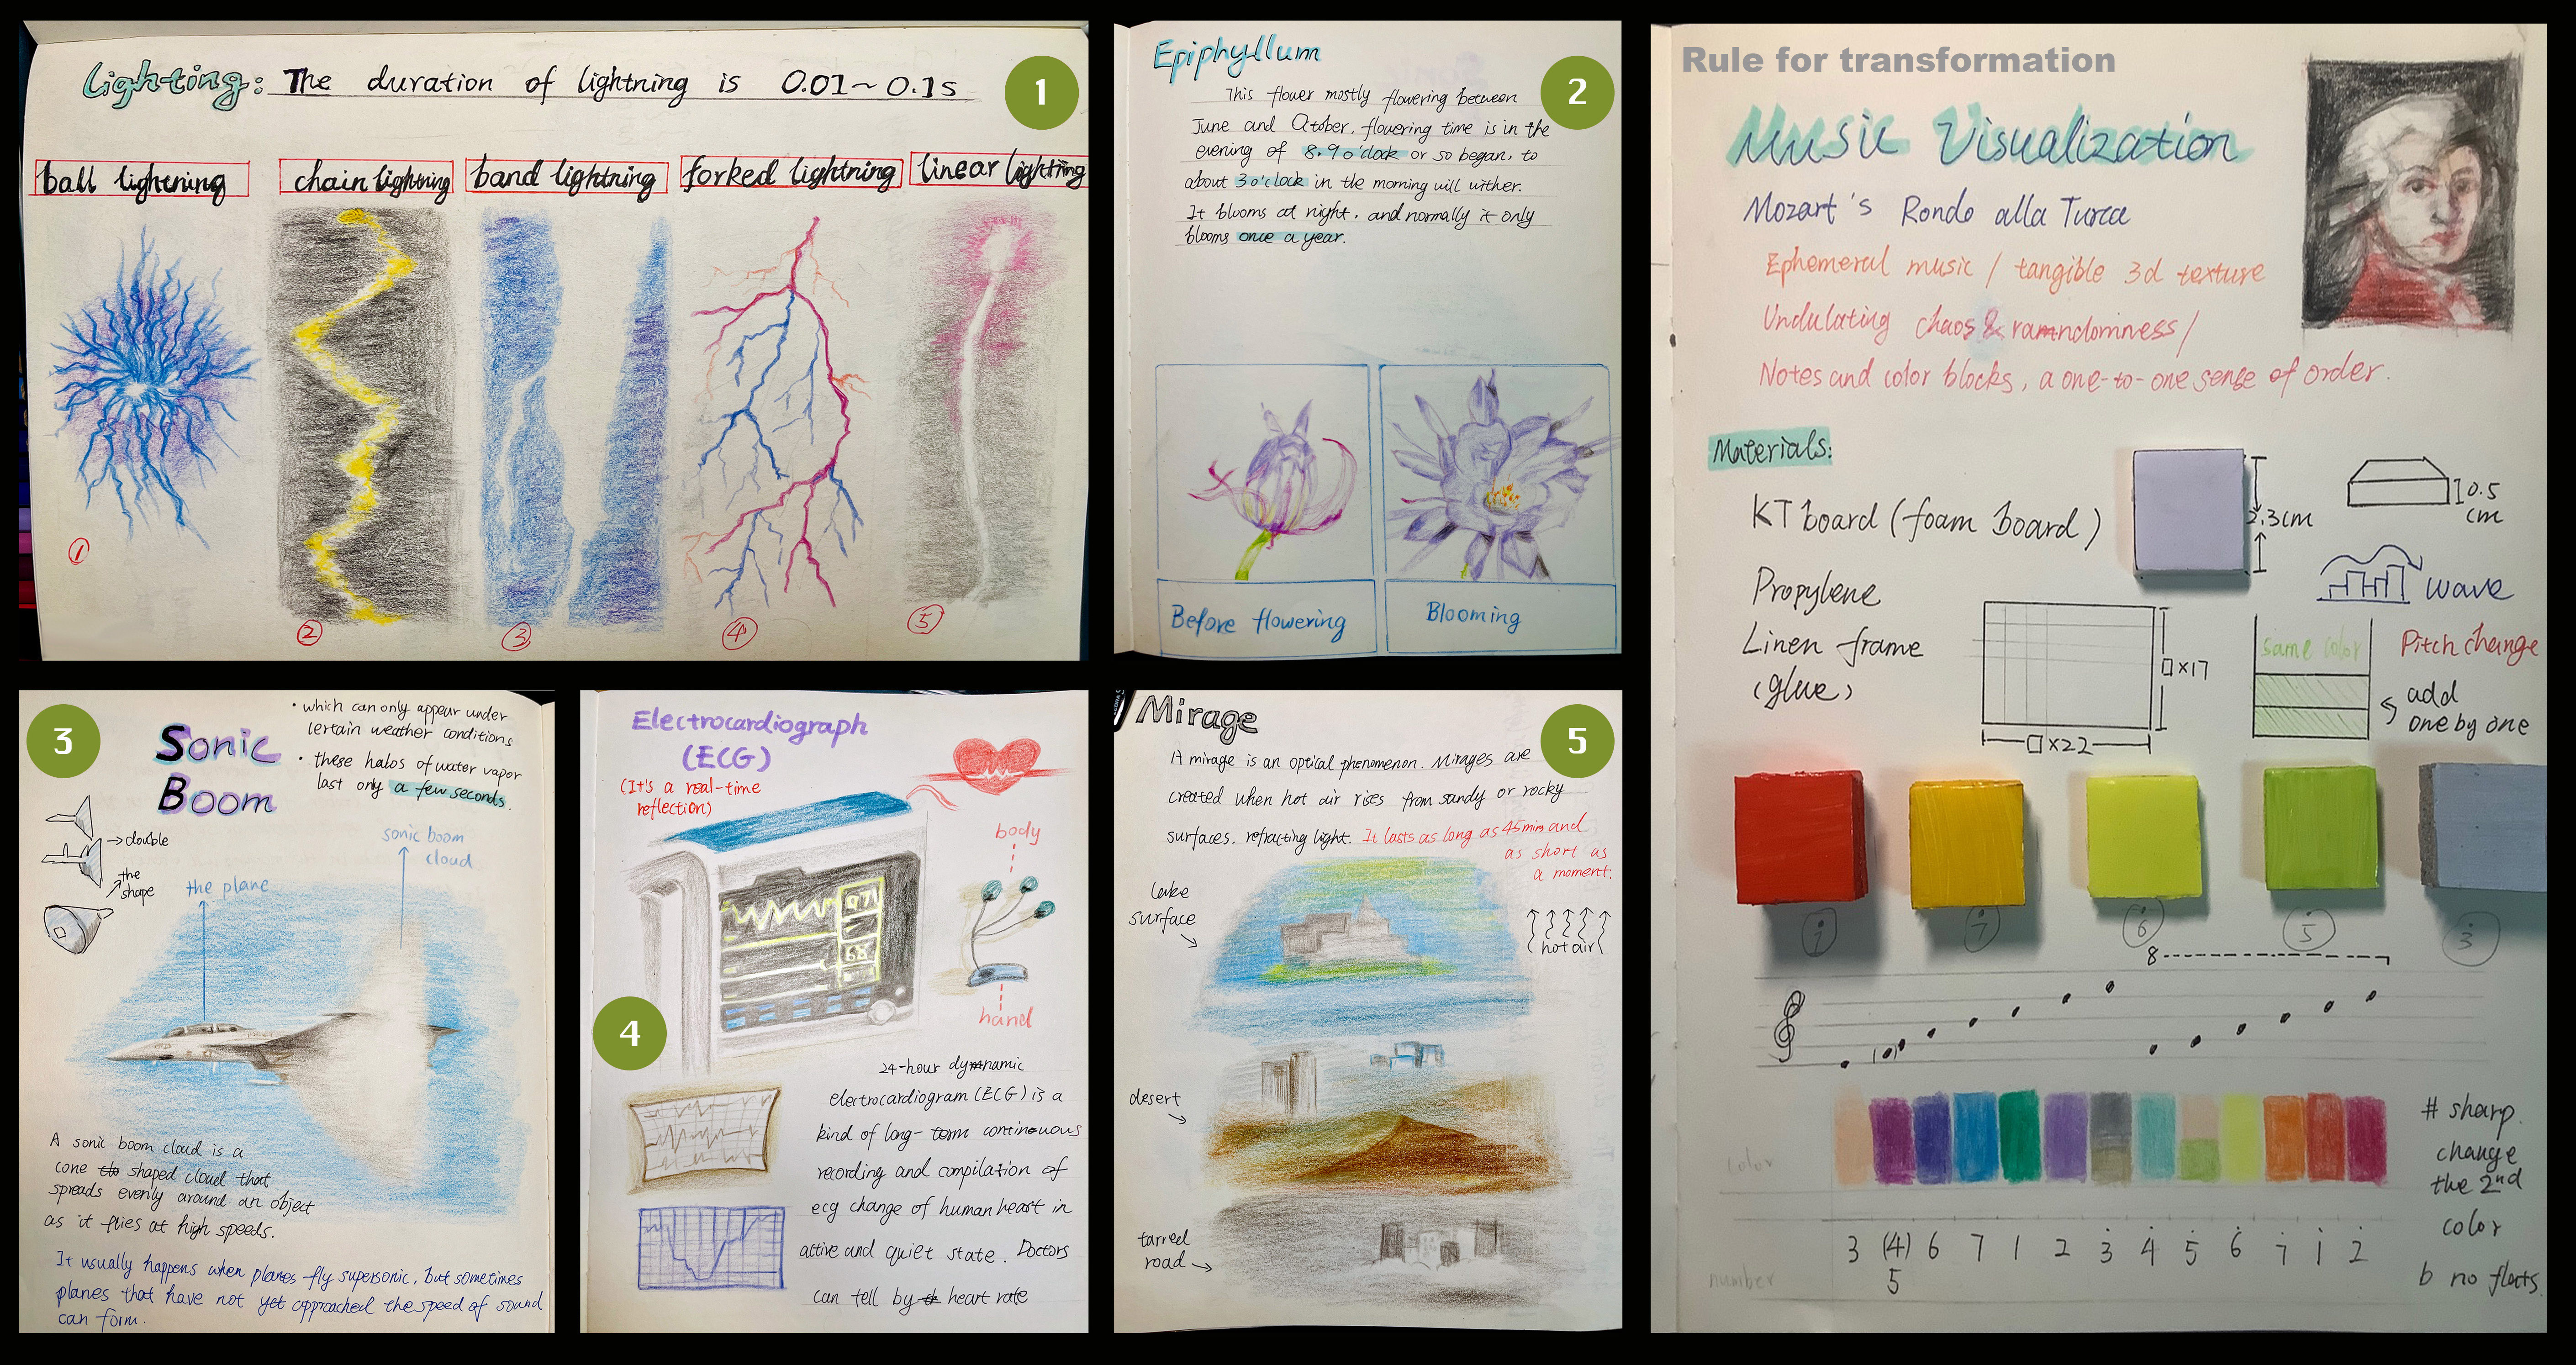 Lighting: The duration of lightning is 0.01~0.1s
1
ball lightning
chain lightning
band lightning
forked lightning
linear lightning
①
②
③
④
⑤
Epiphyllum
2
This flower mostly flowering between
June and October, flowering time is in the
evening of 8.9 o'clock or so began, to
about 3 o'clock in the morning will wither.
It blooms at night, and normally it only
blooms once a year.
Before flowering
Blooming
3
Sonic
Boom
• which can only appear under
certain weather conditions
• these halos of water vapor
last only a few seconds.
→double
the
shape
the plane
sonic boom
cloud
A sonic boom cloud is a
cone shaped cloud that
spreads evenly around an object
as it flies at high speeds.
It usually happens when planes fly supersonic, but sometimes
planes that have not yet approached the speed of sound
can form.
Electrocardiograph
(ECG)
(It's a real-time
reflection)
body
hand
97
68
4
24-hour dynamic
electrocardiogram (ECG) is a
kind of long-term continuous
recording and compilation of
ecg change of human heart in
active and quiet state. Doctors
can tell by heart rate
Mirage
5
A mirage is an optical phenomenon. Mirages are
created when hot air rises from sandy or rocky
surfaces, refracting light. It lasts as long as 45mins and
as short as
a moment.
lake
surface
hot air
desert
tarred
road
Rule for transformation
Music Visualization
Mozart's Rondo alla Turca
Ephemeral music / tangible 3d texture
Undulating chaos & ramndomness /
Notes and color blocks, a one-to-one sense of order.
Materials:
KT board (foam board)
Propylene
Linen frame
(glue)
2.3cm
0.5
cm
wave
□×17
□×22
same color
Pitch change
add
one by one
1
7
6
5
3
8
color
number
3 (4) 6 7 1 2 3 4 5 6 7 1 2
5
# sharp.
change
the 2nd
color
b no flats.